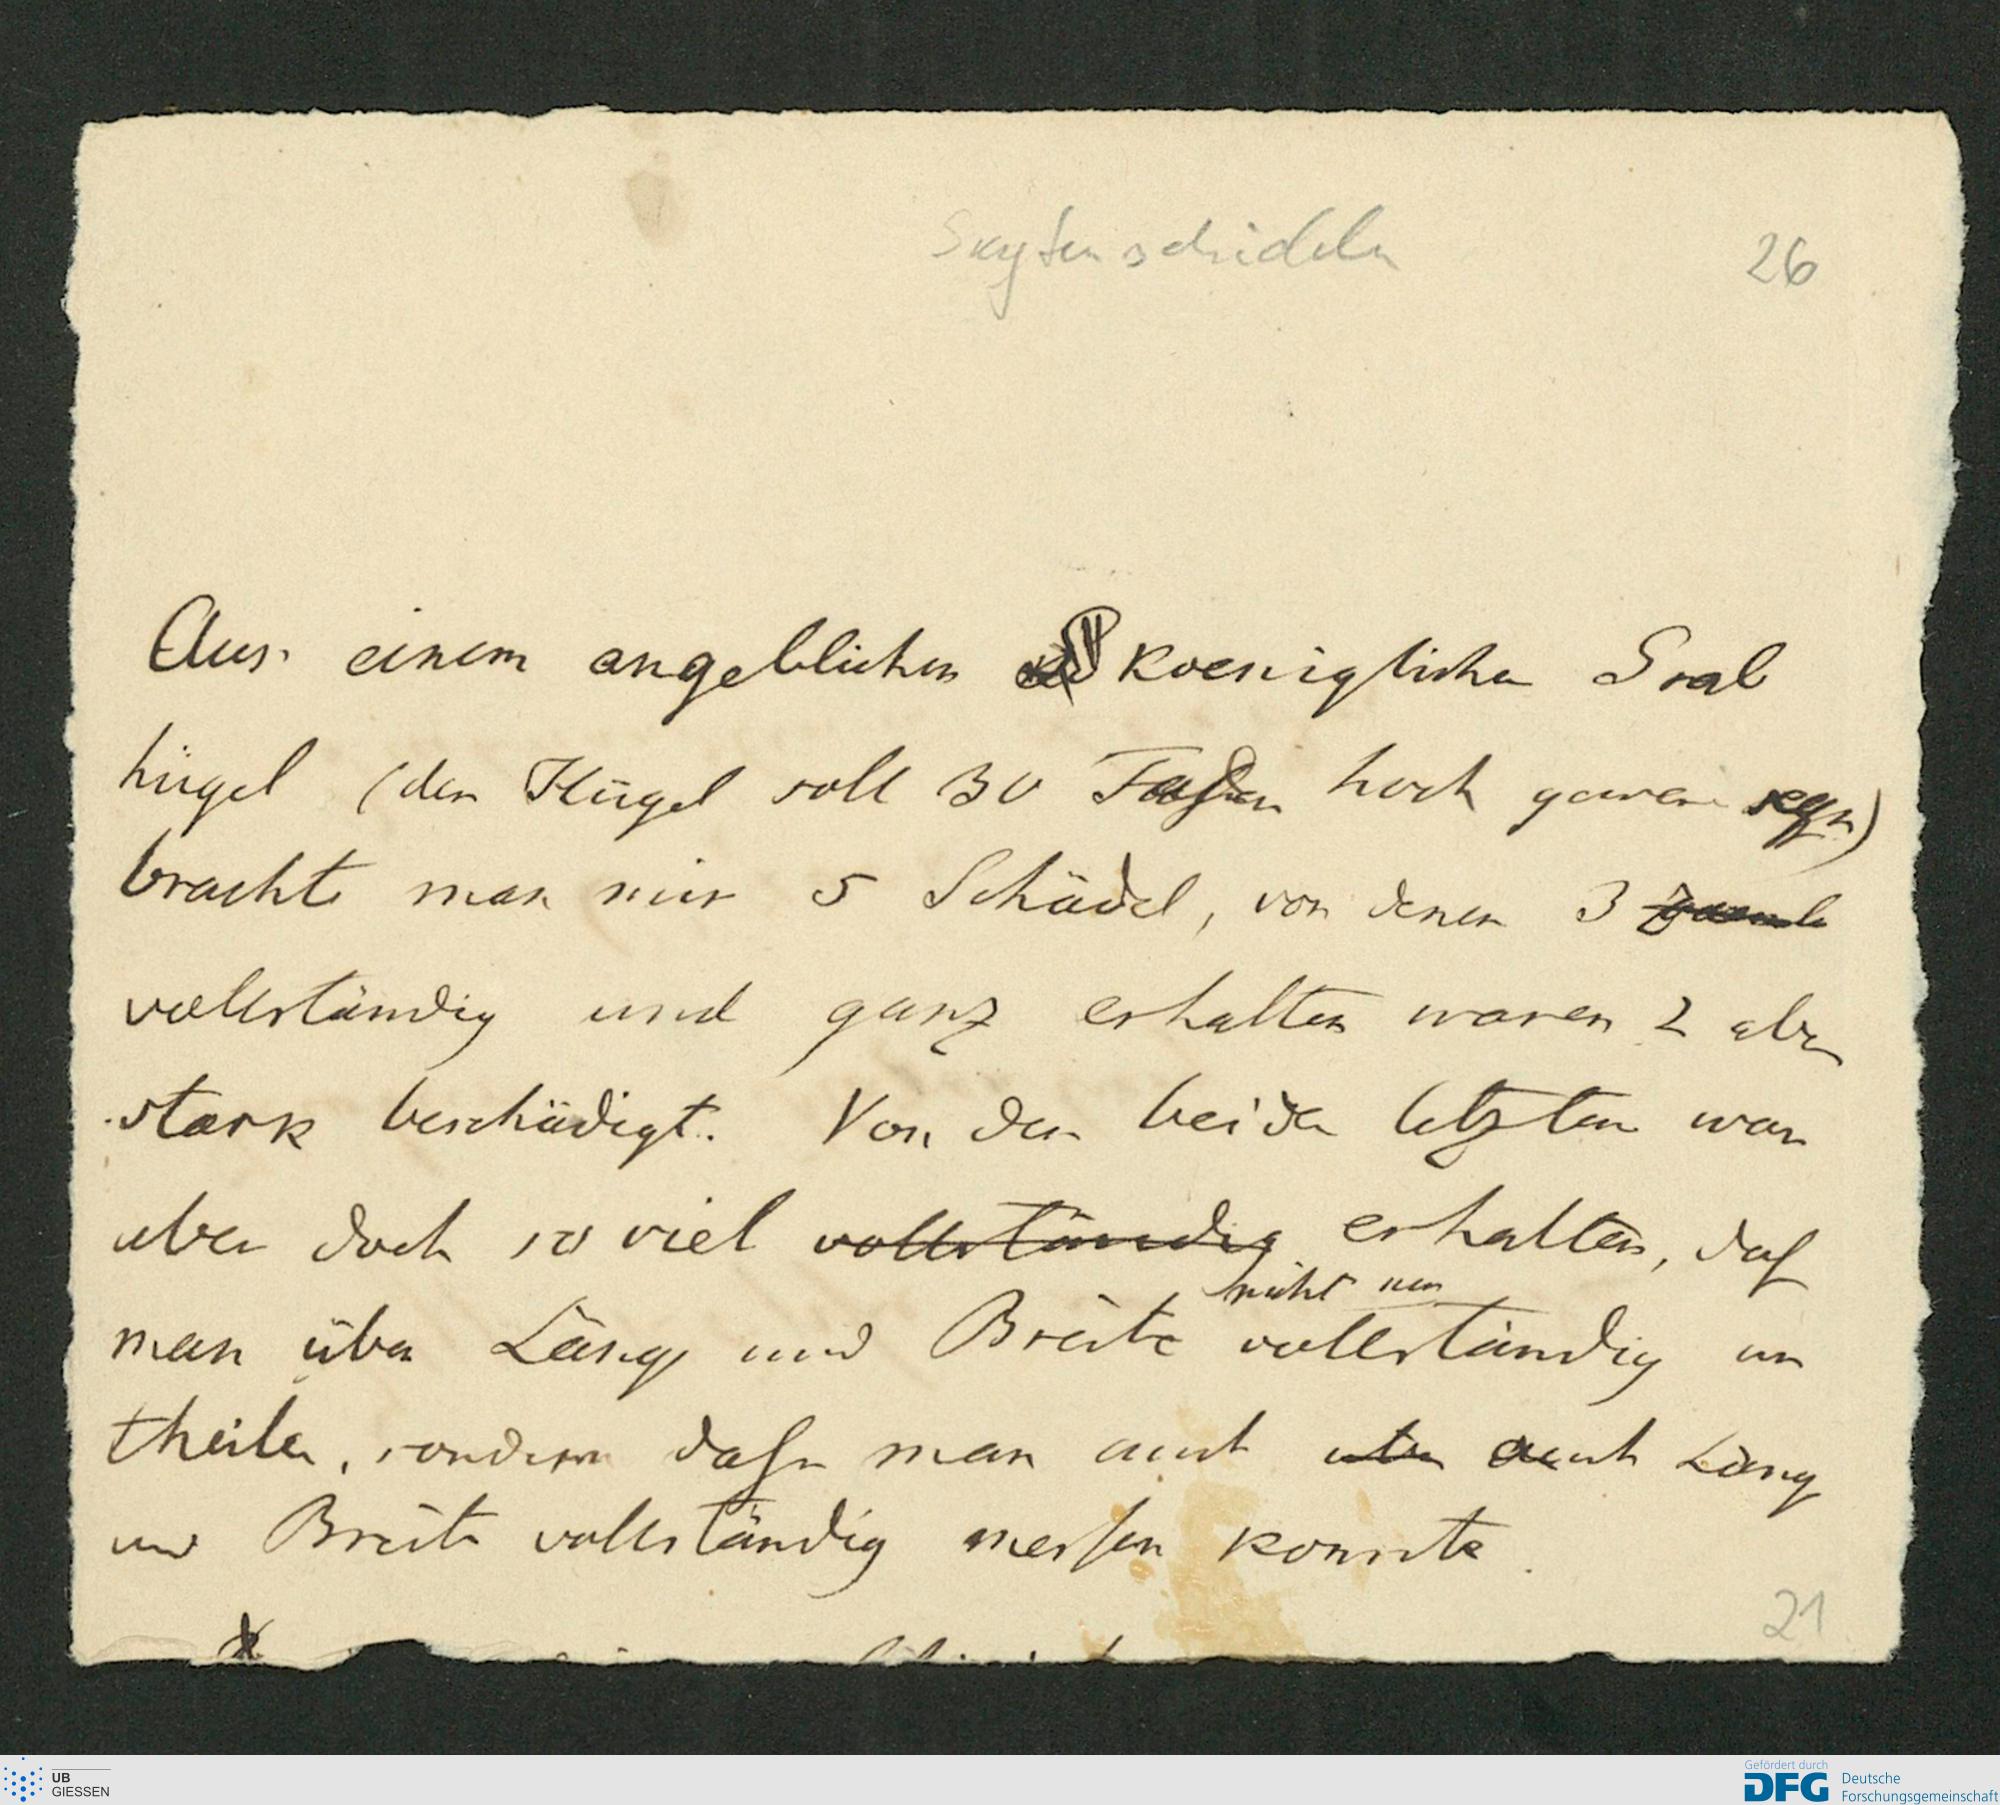 Skytenschädeln
26
Aus einem angeblichen koeniglichen Grab
hügel (der Hügel soll 30 Faden hoch gewesen seyn)
brachte man mir 5 Schädel, von denen 3
vollständig und ganz erhalten waren 2 aber
stark beschädigt. Von den beiden letzten war
aber doch so viel vollständig erhalten, daß
nicht nur
man über Länge und Breite vollständig ur
theilen, sondern daß man auch aber auch Länge
und Breite vollständig messen konnte.
21
UB
GIESSEN
Gefördert durch
DFG Deutsche
Forschungsgemeinschaft